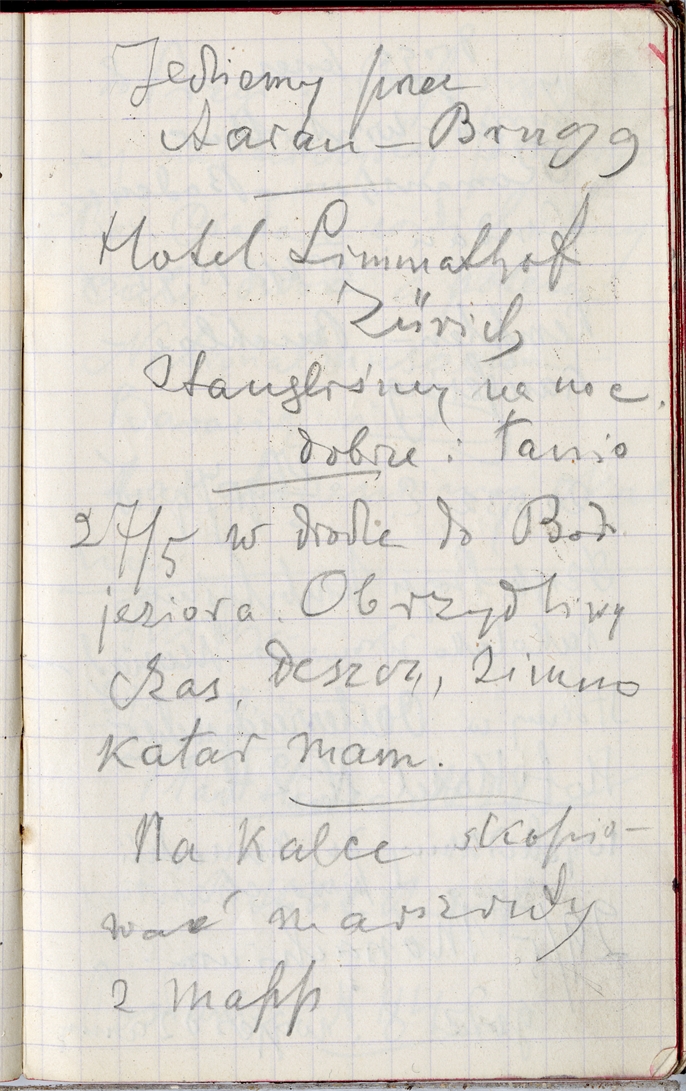 Jedziemy przez
Aarau – Brugg
Hotel Limmathof
Zürich
Stanęliśmy na noc.
dobrze i tanio
27/5 w drodze do Bod.
jeziora. Obrzydliwy
czas, deszcz, zimno
katar mam.
Na kalce skopio-
wać marszruty
z mapp